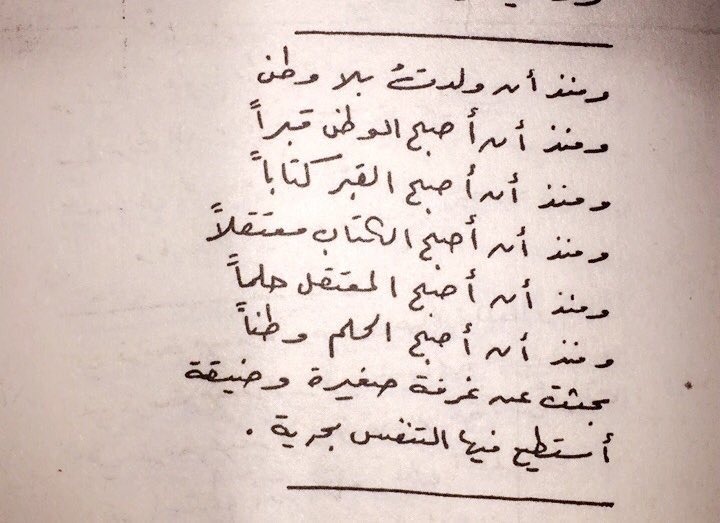 ومنذ أن ولدتُ بلا وطن
ومنذ أن أصبح الوطن قبراً
ومنذ أن أصبح القبر كتاباً
ومنذ أن أصبح الكتاب معتقلاً
ومنذ أن أصبح المعتقل حلماً
ومنذ أن أصبح الحلم وطناً
بحثت عن غرفة صغيرة وضيقة
أستطيع فيها التنفس بحرية .